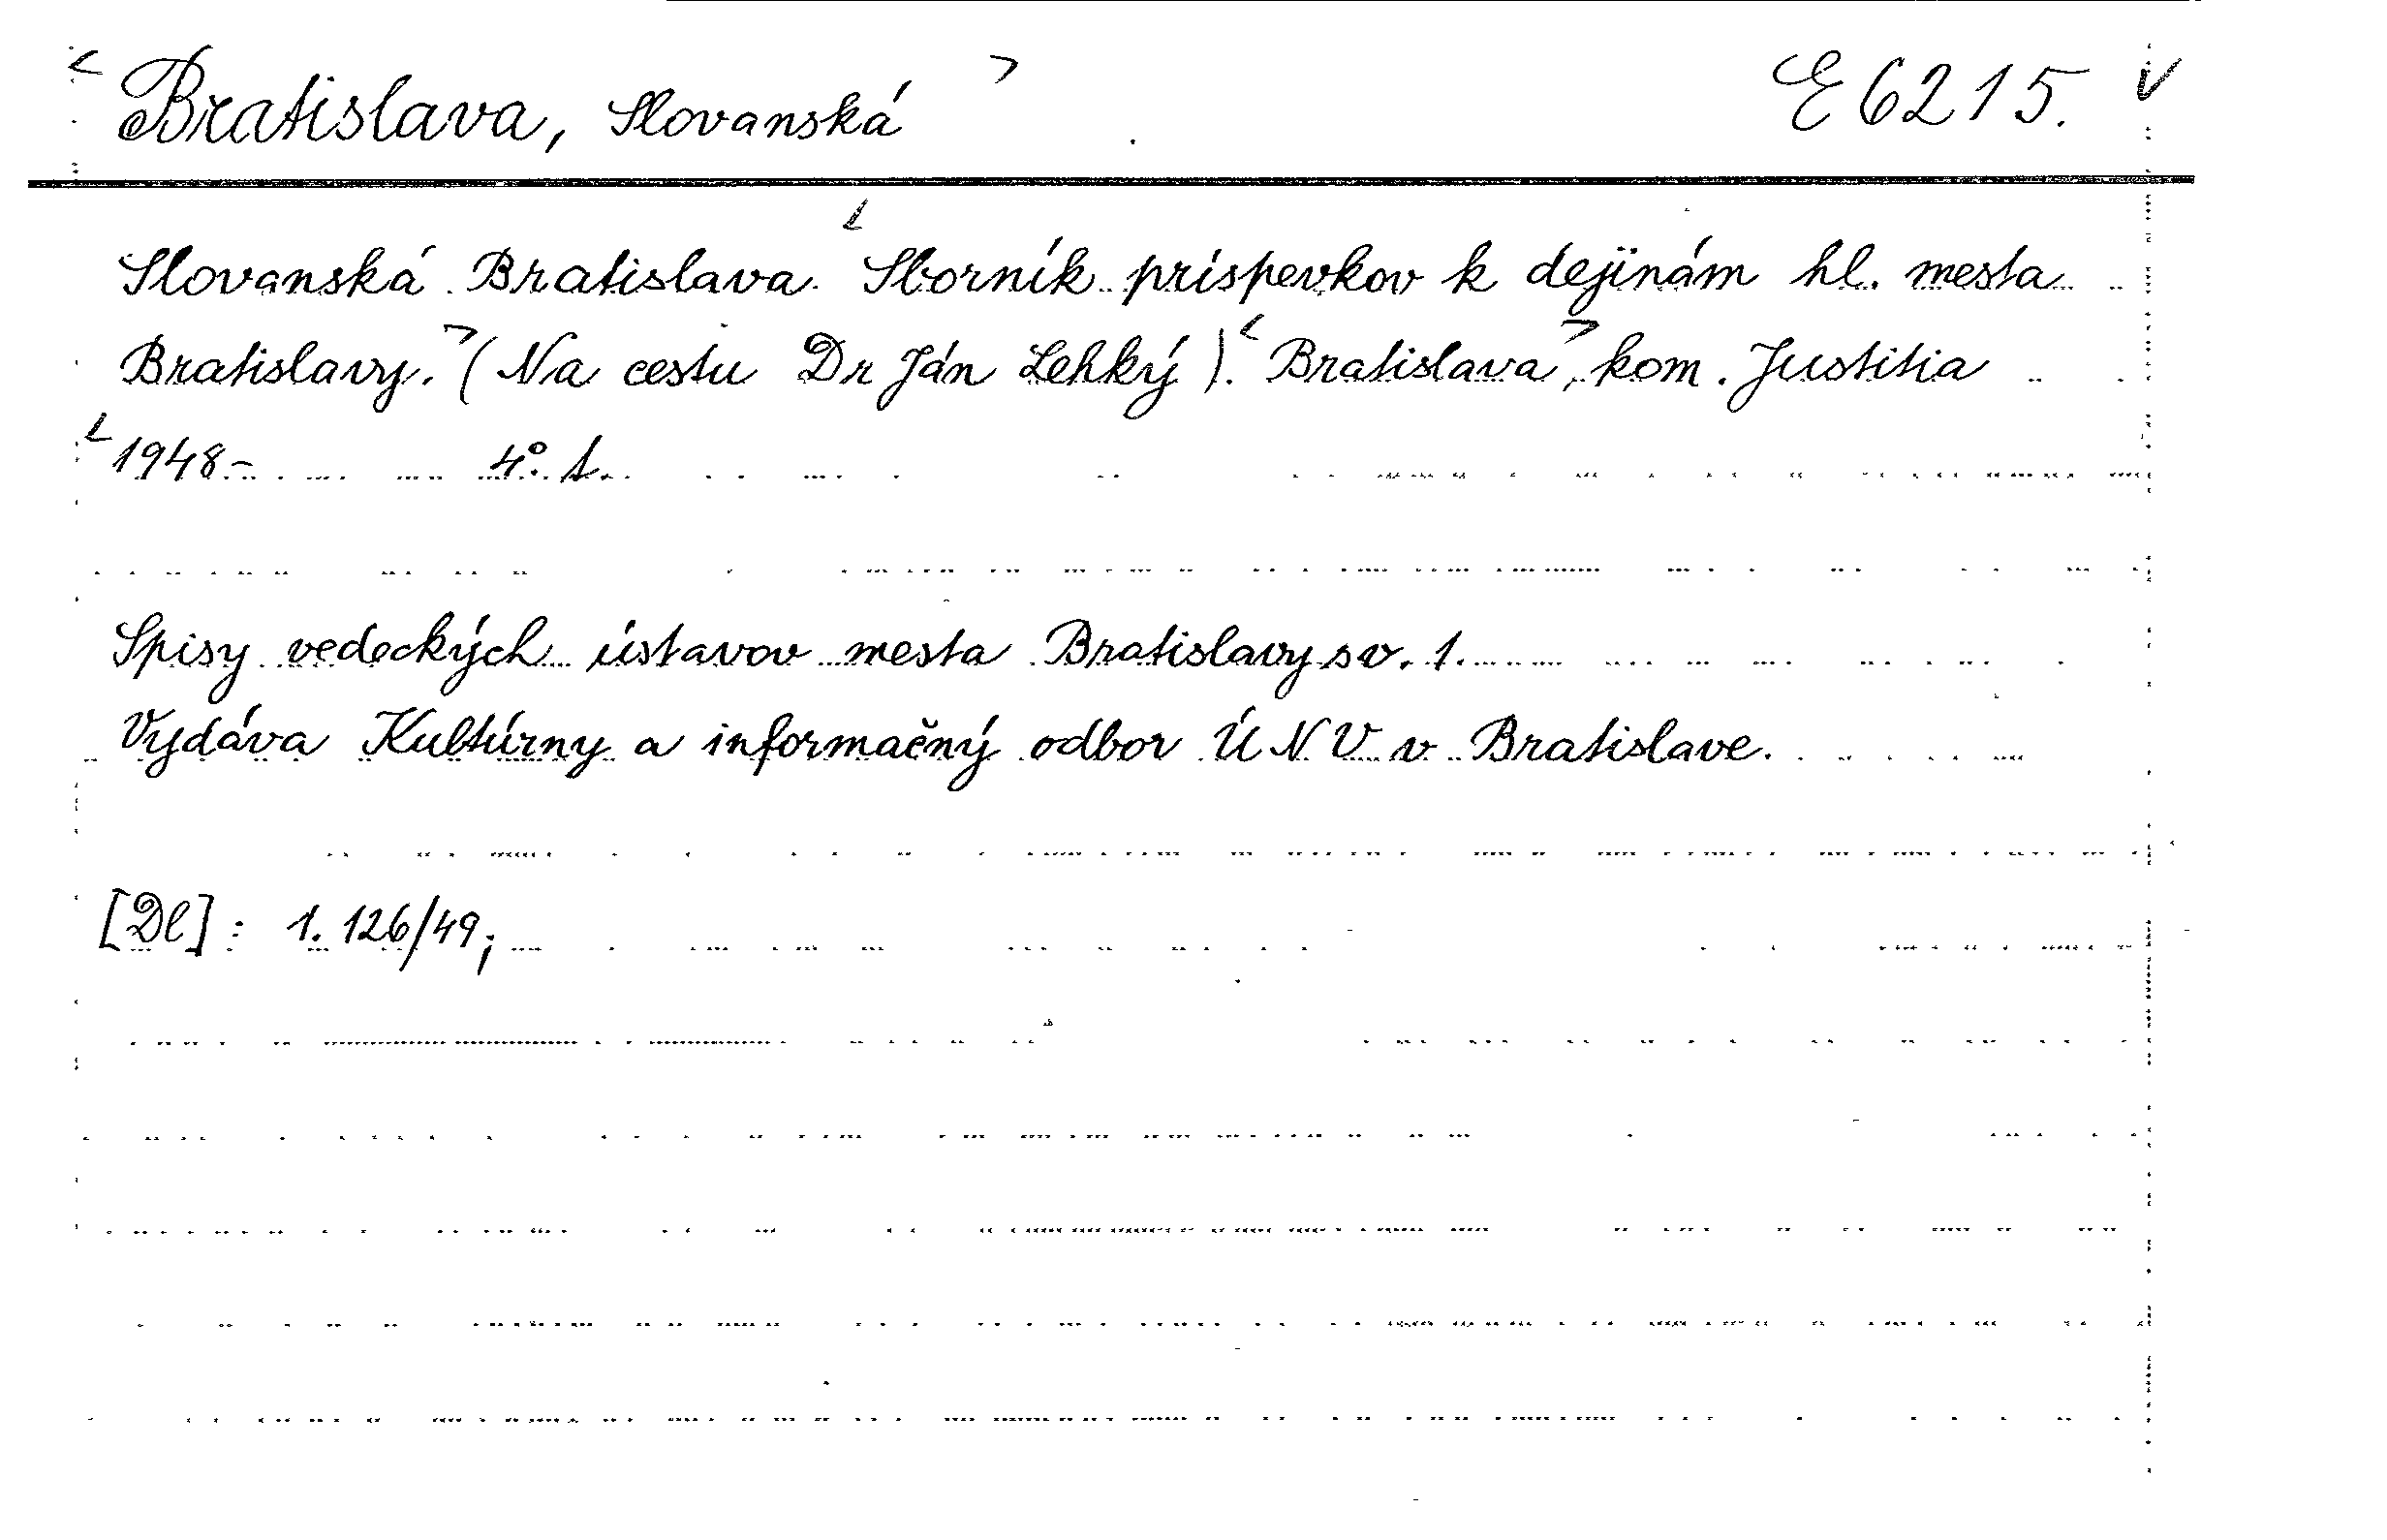 < Bratislava, Slovanská > E 6215. v
Slovanská Bratislava. < Sborník príspevkov k dejinám hl. mesta
Bratislavy. > (Na cestu Dr Ján Lehký). < Bratislava >, kom. Justitia
< 1948- 4°. 1.
Spisy vedeckých ústavov mesta Bratislavy sv. 1.
Vydáva Kultúrny a informačný odbor ÚNV v Bratislave.
[Dl]: 1. 126/49;